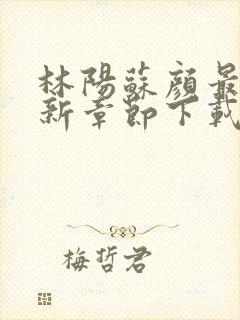 林陽蘇顔最
新章節下載
梅哲君